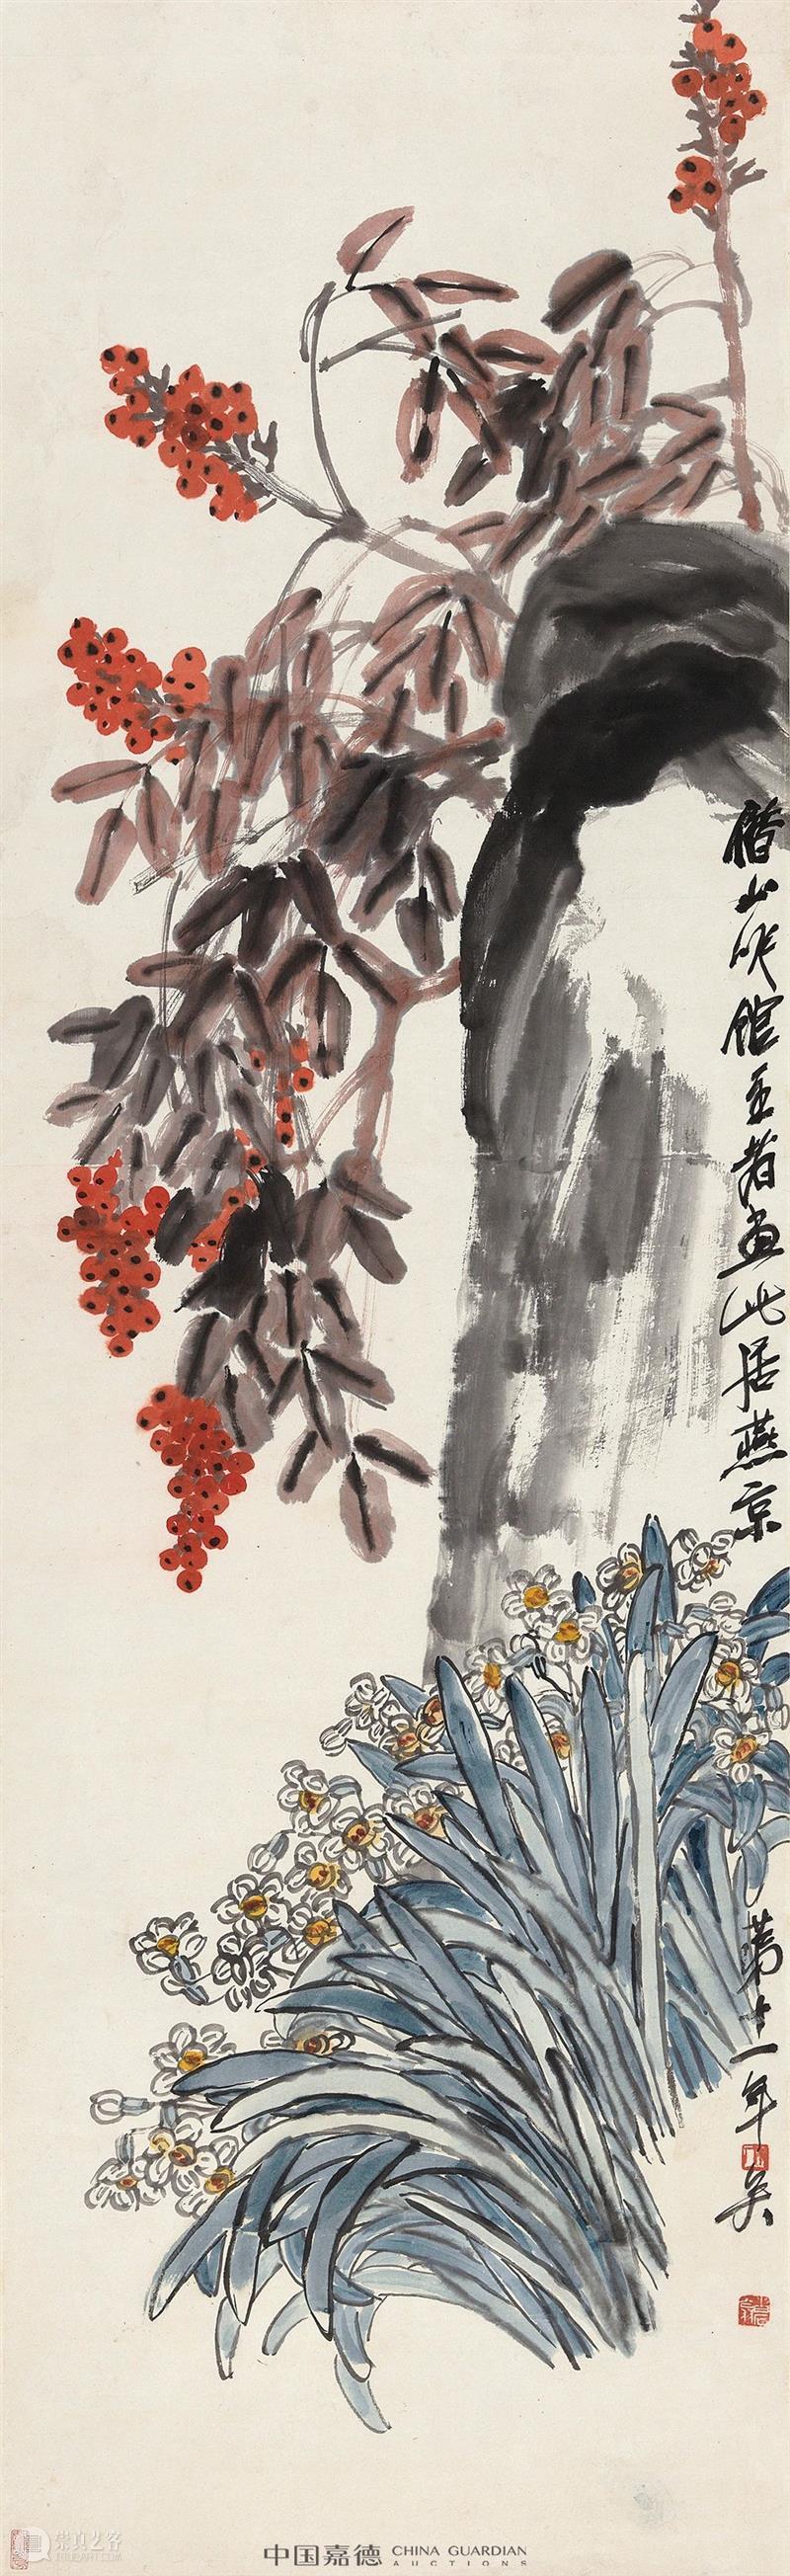 借山吟館主者画此居燕京
第十一年矣
崇真艺客
中国嘉德 CHINA GUARDIAN
AUCTIONS